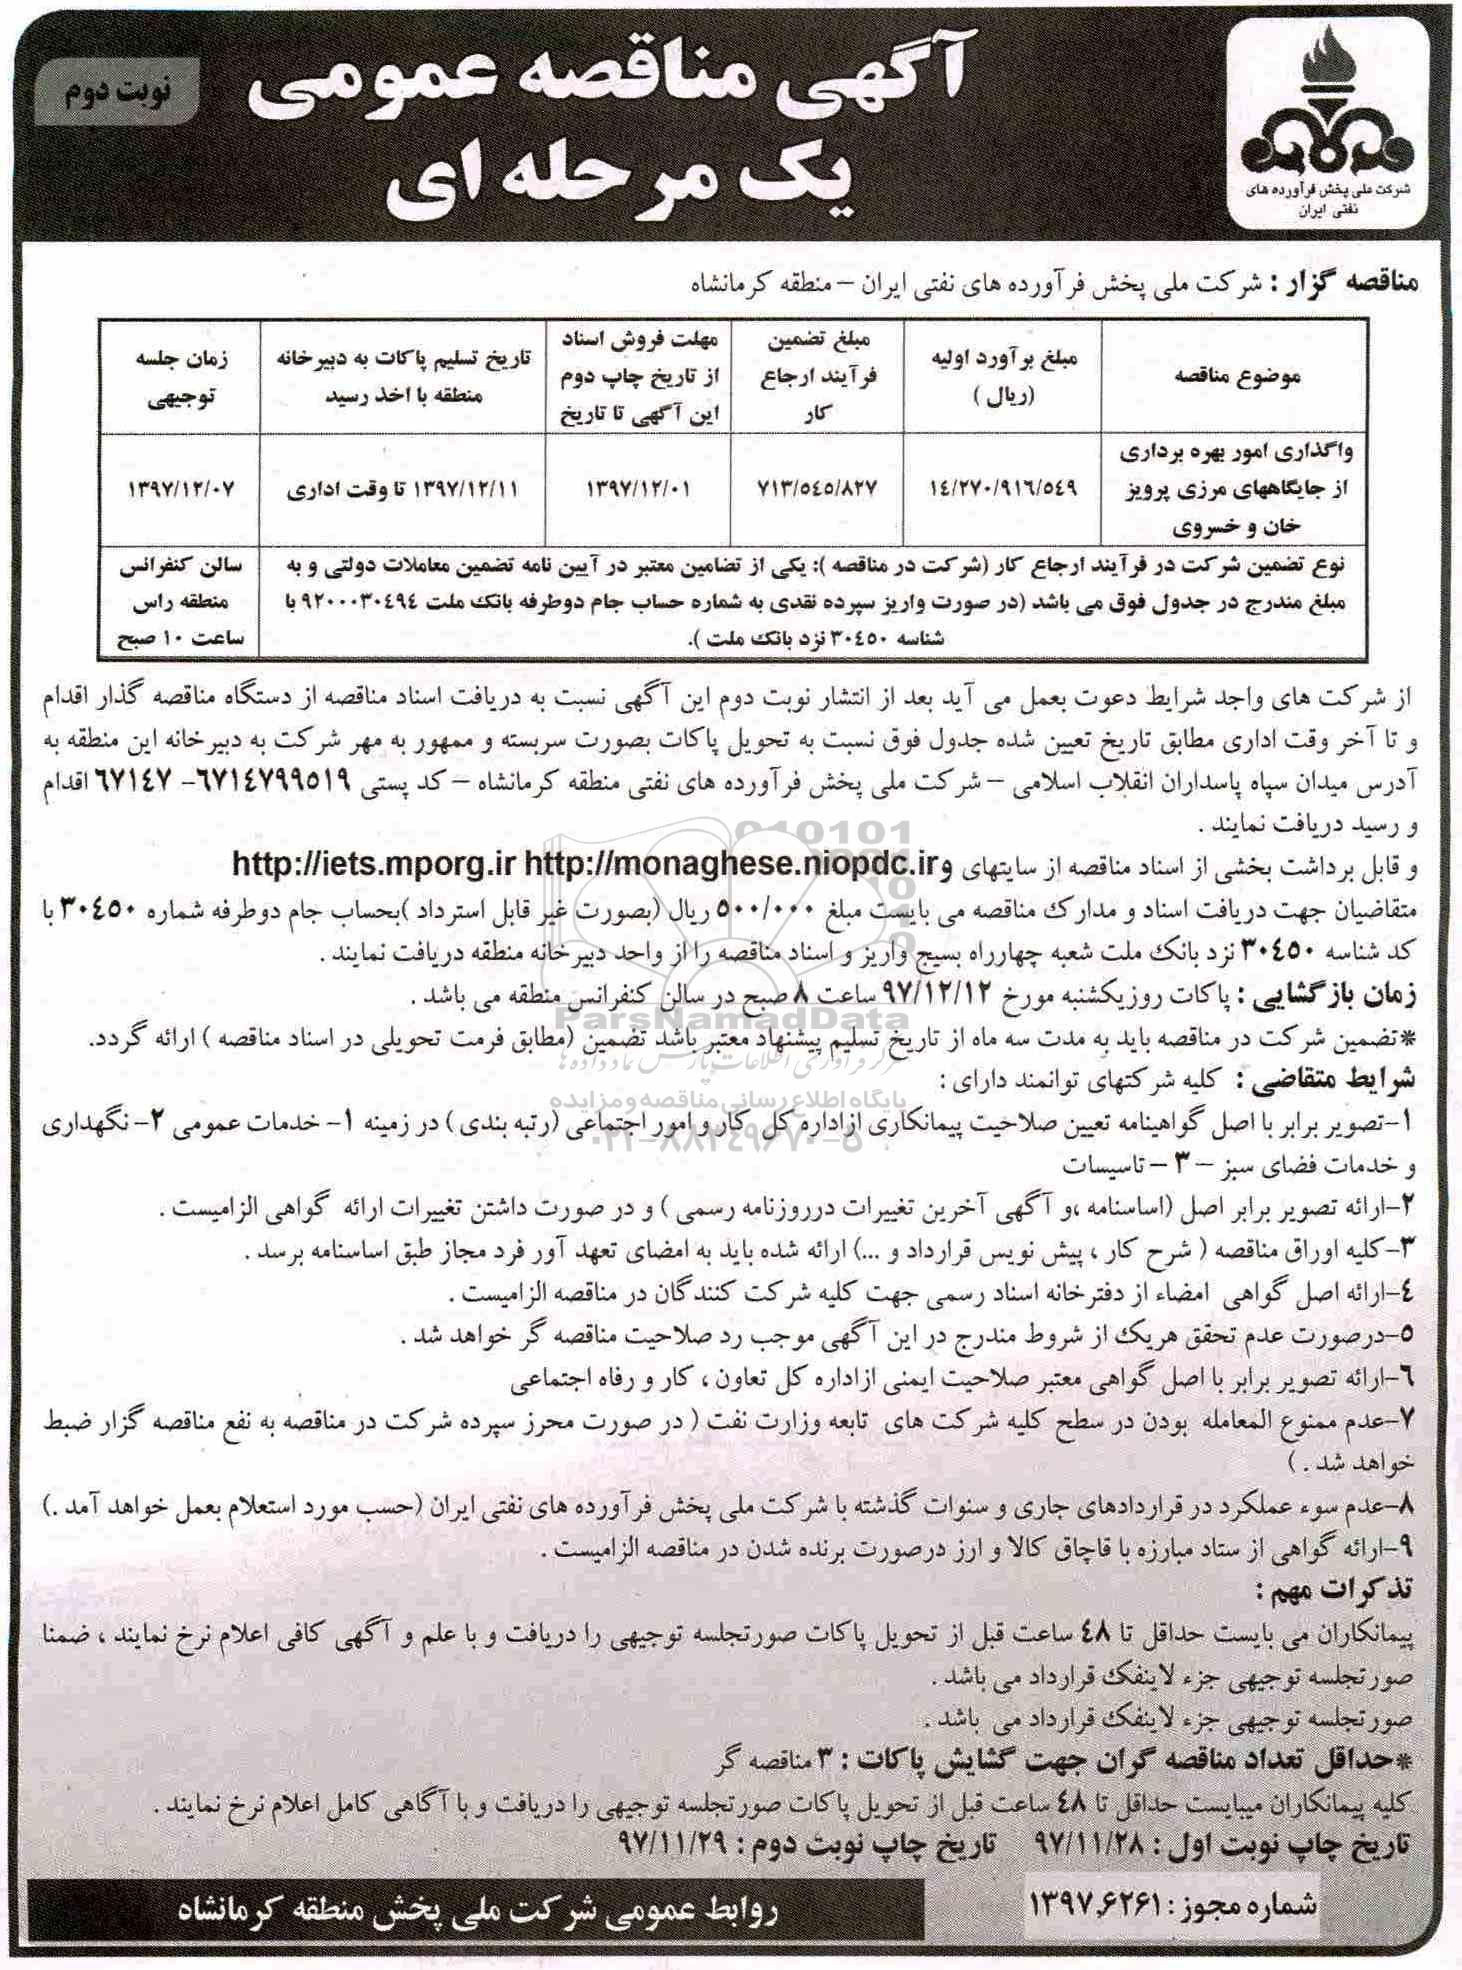 آگهی مناقصه عمومی
یک مرحله ای
نوبت دوم
شرکت ملی پخش فرآورده های
نفتی ایران
مناقصه گزار : شرکت ملی پخش فرآورده های نفتی ایران – منطقه کرمانشاه
موضوع مناقصه
مبلغ برآورد اولیه
(ریال )
مبلغ تضمین
فرآیند ارجاع
کار
مهلت فروش اسناد
از تاریخ چاپ دوم
این آگهی تا تاریخ
تاریخ تسلیم پاکات به دبیرخانه
منطقه با اخذ رسید
زمان جلسه
توجیهی
واگذاری امور بهره برداری
از جایگاههای مرزی پرویز
خان و خسروی
۱٤/۲۷۰/۹۱٦/۵٤۹
۷۱۳/۵٤۵/۸۲۷
۱۳۹۷/۱۲/۰۱
۱۳۹۷/۱۲/۱۱ تا وقت اداری
۱۳۹۷/۱۲/۰۷
نوع تضمین شرکت در فرآیند ارجاع کار (شرکت در مناقصه ): یکی از تضامین معتبر در آیین نامه تضمین معاملات دولتی و به
مبلغ مندرج در جدول فوق می باشد (در صورت واریز سپرده نقدی به شماره حساب جام دوطرفه بانک ملت ۹۲۰۰۰۳۰٤۹٤ با
شناسه ۳۰٤۵۰ نزد بانک ملت ).
سالن کنفرانس
منطقه راس
ساعت ۱۰ صبح
از شرکت های واجد شرایط دعوت بعمل می آید بعد از انتشار نوبت دوم این آگهی نسبت به دریافت اسناد مناقصه از دستگاه مناقصه گذار اقدام
و تا آخر وقت اداری مطابق تاریخ تعیین شده جدول فوق نسبت به تحویل پاکات بصورت سربسته و ممهور به مهر شرکت به دبیرخانه این منطقه به
آدرس میدان سپاه پاسداران انقلاب اسلامی – شرکت ملی پخش فرآورده های نفتی منطقه کرمانشاه – کد پستی ٦۷۱٤۷۹۹۵۱۹- ٦۷۱٤۷ اقدام
و رسید دریافت نمایند .
و قابل برداشت بخشی از اسناد مناقصه از سایتهای http://iets.mporg.ir http://monaghese.niopdc.irو
متقاضیان جهت دریافت اسناد و مدارک مناقصه می بایست مبلغ ۵۰۰/۰۰۰ ریال (بصورت غیر قابل استرداد )بحساب جام دوطرفه شماره ۳۰٤۵۰ با
کد شناسه ۳۰٤۵۰ نزد بانک ملت شعبه چهارراه بسیج واریز و اسناد مناقصه را از واحد دبیرخانه منطقه دریافت نمایند .
زمان بازگشایی : پاکات روزیکشنبه مورخ ۹۷/۱۲/۱۲ ساعت ۸ صبح در سالن کنفرانس منطقه می باشد .
ParsNamadData
*تضمین شرکت در مناقصه باید به مدت سه ماه از تاریخ تسلیم پیشنهاد معتبر باشد تضمین (مطابق فرمت تحویلی در اسناد مناقصه ) ارائه گردد.
شرایط متقاضی : کلیه شرکتهای توانمند دارای :
پایگاه اطلاع رسانی مناقصه و مزایده
۱-تصویر برابر با اصل گواهینامه تعیین صلاحیت پیمانکاری ازاداره کل کار و امور اجتماعی (رتبه بندی ) در زمینه ۱- خدمات عمومی ۲- نگهداری
۰۲۱-۸۸۳٤۹٦۷۰-۵
و خدمات فضای سبز – ۳ – تاسیسات
۲-ارائه تصویر برابر اصل (اساسنامه ،و آگهی آخرین تغییرات درروزنامه رسمی ) و در صورت داشتن تغییرات ارائه گواهی الزامیست .
۳-کلیه اوراق مناقصه ( شرح کار ، پیش نویس قرارداد و ...) ارائه شده باید به امضای تعهد آور فرد مجاز طبق اساسنامه برسد .
٤-ارائه اصل گواهی امضاء از دفترخانه اسناد رسمی جهت کلیه شرکت کنندگان در مناقصه الزامیست .
۵-درصورت عدم تحقق هریک از شروط مندرج در این آگهی موجب رد صلاحیت مناقصه گر خواهد شد .
٦-ارائه تصویر برابر با اصل گواهی معتبر صلاحیت ایمنی ازاداره کل تعاون ، کار و رفاه اجتماعی
۷-عدم ممنوع المعامله بودن در سطح کلیه شرکت های تابعه وزارت نفت ( در صورت محرز سپرده شرکت در مناقصه به نفع مناقصه گزار ضبط
خواهد شد . )
۸-عدم سوء عملکرد در قراردادهای جاری و سنوات گذشته با شرکت ملی پخش فرآورده های نفتی ایران (حسب مورد استعلام بعمل خواهد آمد .)
۹-ارائه گواهی از ستاد مبارزه با قاچاق کالا و ارز درصورت برنده شدن در مناقصه الزامیست .
تذکرات مهم :
پیمانکاران می بایست حداقل تا ٤۸ ساعت قبل از تحویل پاکات صورتجلسه توجیهی را دریافت و با علم و آگهی کافی اعلام نرخ نمایند ، ضمنا
صورتجلسه توجیهی جزء لاینفک قرارداد می باشد .
صورتجلسه توجیهی جزء لاینفک قرارداد می باشد .
*حداقل تعداد مناقصه گران جهت گشایش پاکات : ۳ مناقصه گر
کلیه پیمانکاران میبایست حداقل تا ٤۸ ساعت قبل از تحویل پاکات صورتجلسه توجیهی را دریافت و با آگاهی کامل اعلام نرخ نمایند .
تاریخ چاپ نوبت اول : ۹۷/۱۱/۲۸ تاریخ چاپ نوبت دوم : ۹۷/۱۱/۲۹
شماره مجوز : ۱۳۹۷,٦۲٦۱
روابط عمومی شرکت ملی پخش منطقه کرمانشاه